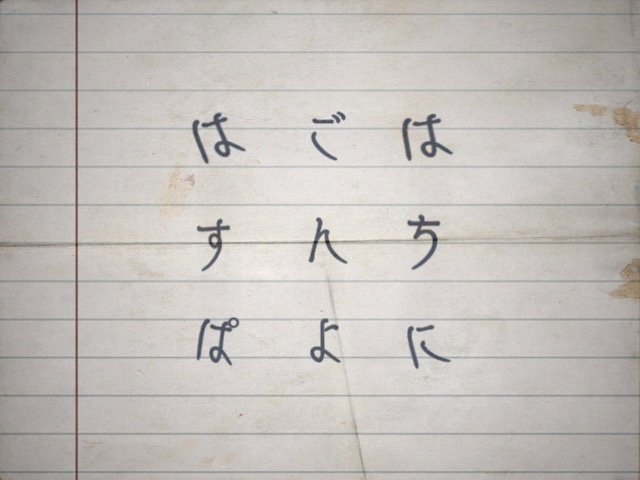 は ご は
す ん ち
ぱ よ に